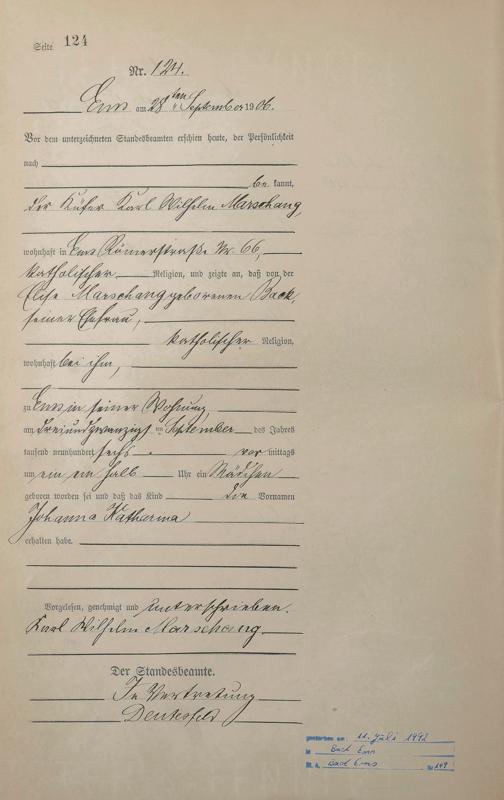 Seite 124
Nr. 124.
Ems am 28ten September 1906.
Vor dem unterzeichneten Standesbeamten erschien heute, der Persönlichkeit
nach
be kannt,
der Küfer Karl Wilhelm Marschang,
wohnhaft in Ems Römerstraße Nr. 66,
katholischer Religion, und zeigte an, daß von der
Elise Marschang geborenen Back,
seiner Ehefrau,
katholischer Religion,
wohnhaft bei ihm,
zu Ems in seiner Wohnung,
am dreiundzwanzigst en September des Jahres
tausend neunhundert sechs vor mittags
um ein ein halb Uhr ein Mädchen
geboren worden sei und daß das Kind die Vornamen
Johanna Katharina
erhalten habe.
Vorgelesen, genehmigt und unterschrieben.
Karl Wilhelm Marschang
Der Standesbeamte.
In Vertretung
gestorben am 11. Juli 1992
in Bad Ems
St. A. Bad Ems Nr 149